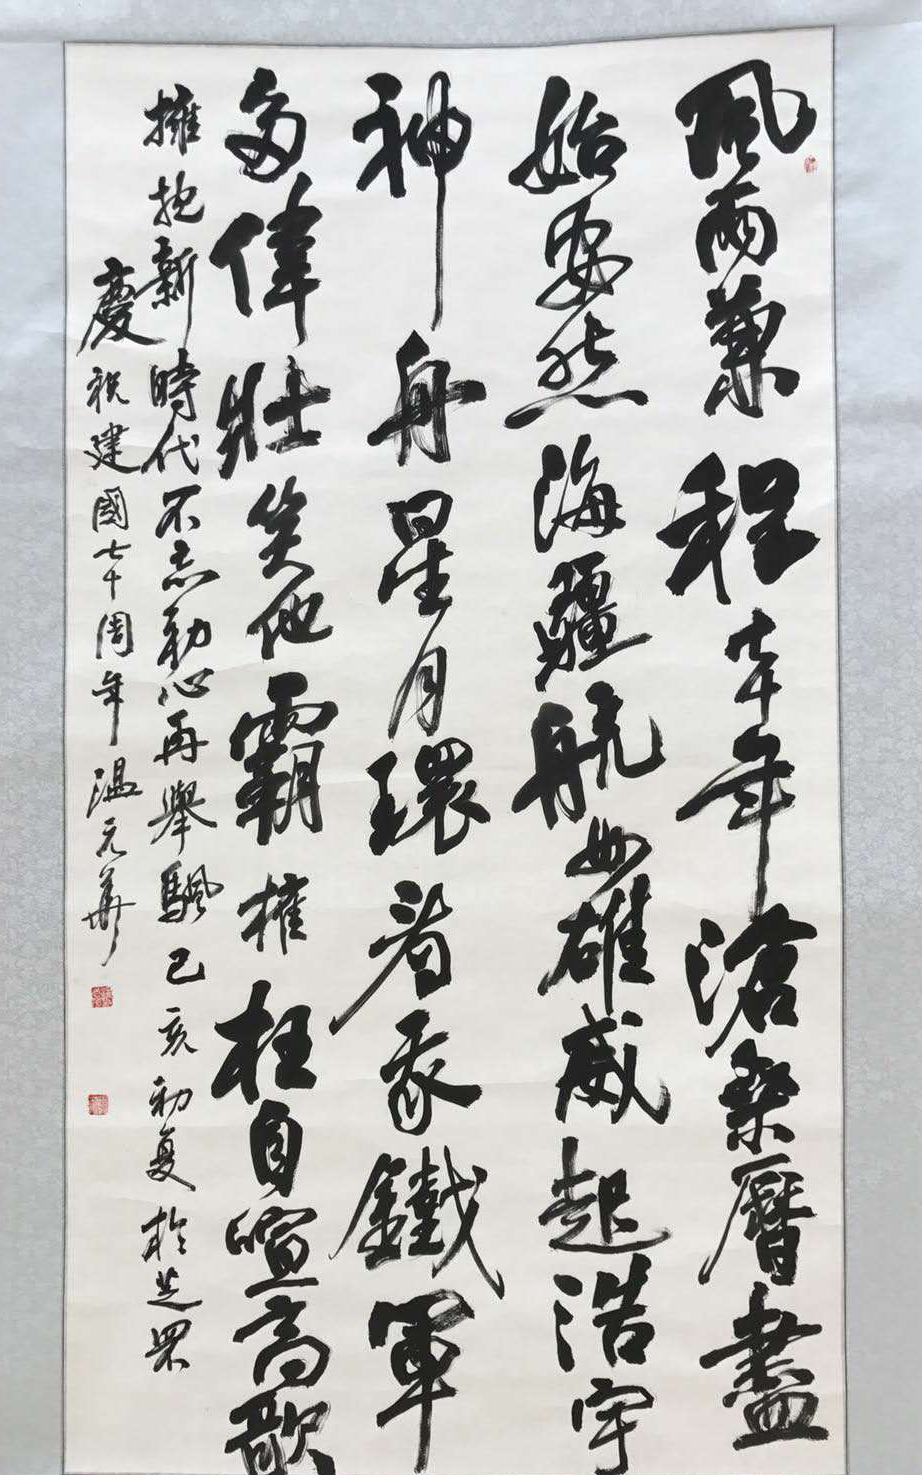 風雨兼程七十年滄桑曆盡
始安然海疆航母雄威起浩宇
神舟星月環看我鐵軍
多偉壯笑他霸權枉自喧高歌
擁抱新時代不忘初心再舉颿己亥初夏於芝罘
慶祝建國七十周年溫元華